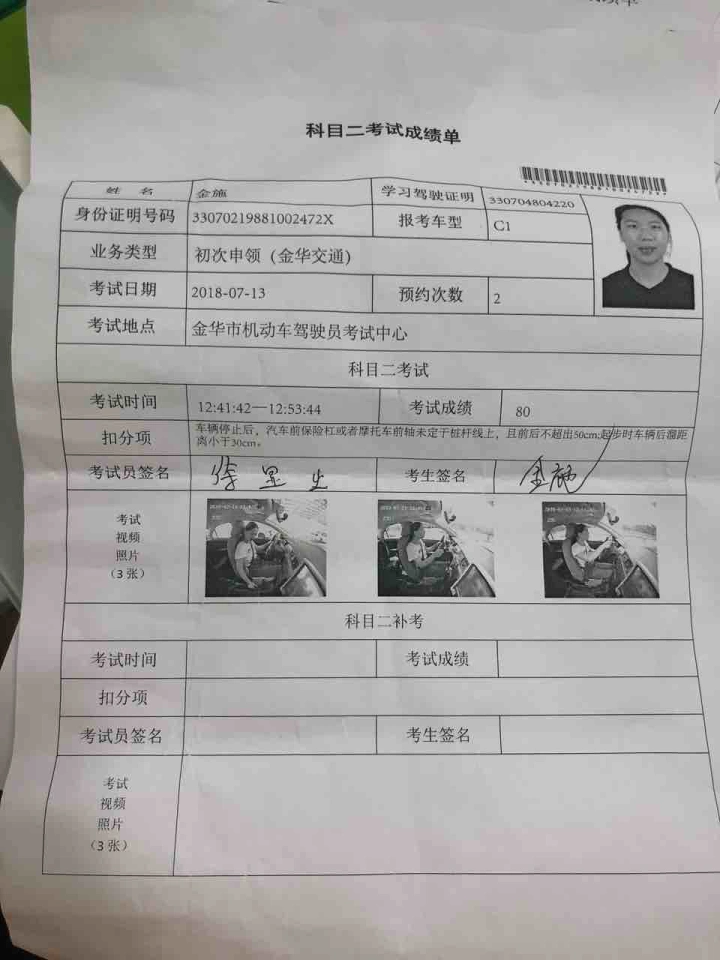 科目二考试成绩单
姓 名 金施 学习驾驶证明 330704804220
身份证明号码 33070219881002472X 报考车型 C1
业务类型 初次申领（金华交通）
考试日期 2018-07-13 预约次数 2
考试地点 金华市机动车驾驶员考试中心
科目二考试
考试时间 12:41:42—12:53:44 考试成绩 80
扣分项 车辆停止后，汽车前保险杠或者摩托车前轴未定于桩杆线上，且前后不超出50cm;起步时车辆后溜距
离小于30cm。
考试员签名 考生签名 金施
考试
视频
照片
（3 张）
科目二补考
考试时间 考试成绩
扣分项
考试员签名 考生签名
考试
视频
照片
（3 张）